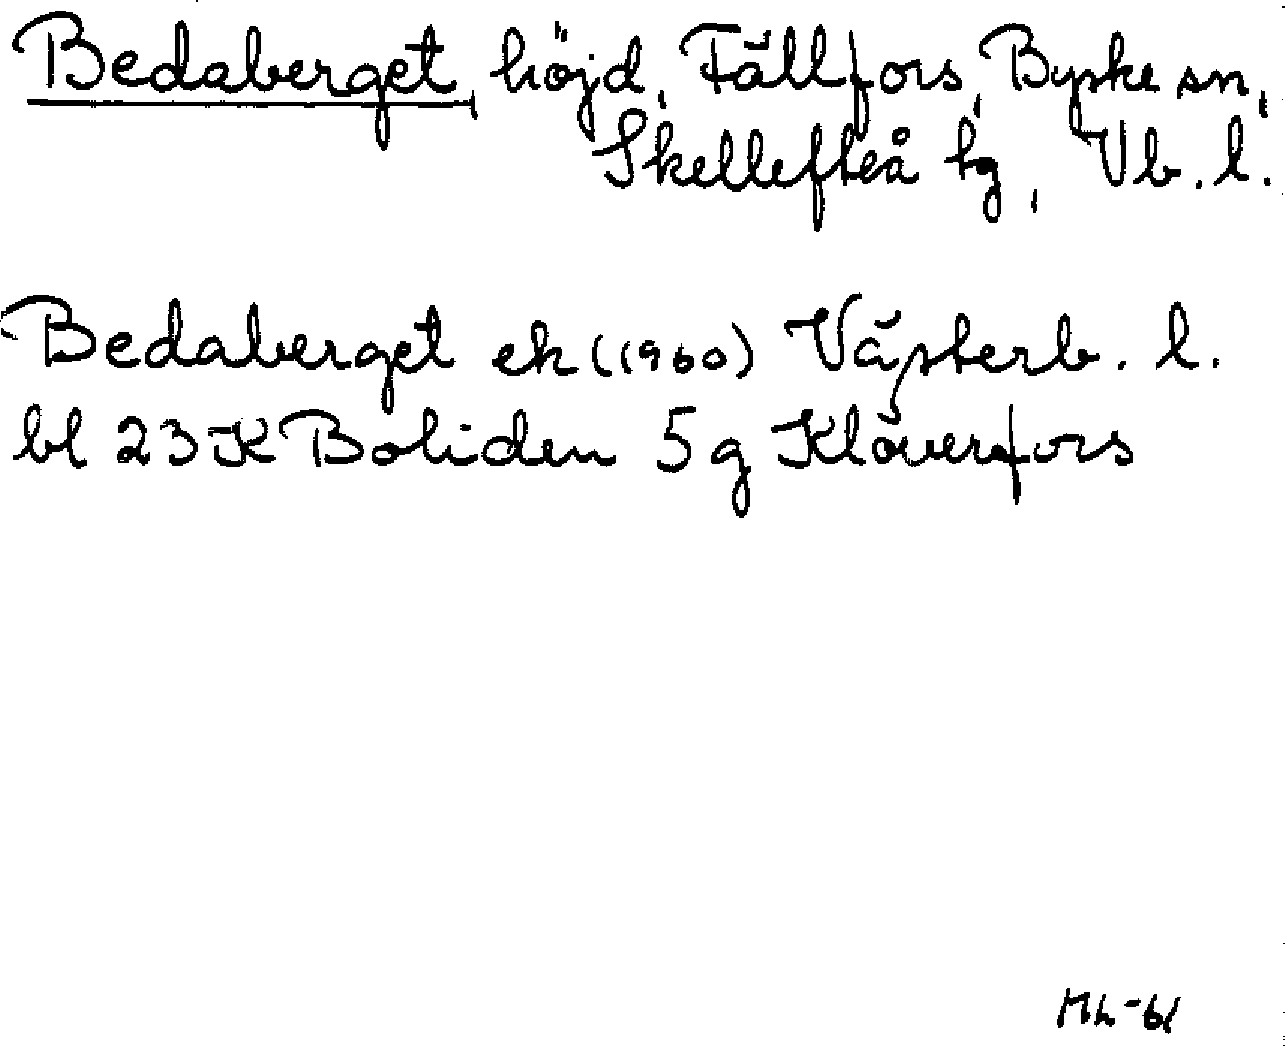 Bedaberget, höjd, Fällfors, Byske sn,
Skellefteå tg, Vb. l.
Bedaberget ek (1960) Västerb. l.
bl 23 K Boliden 5 g Klöverfors
ML-61